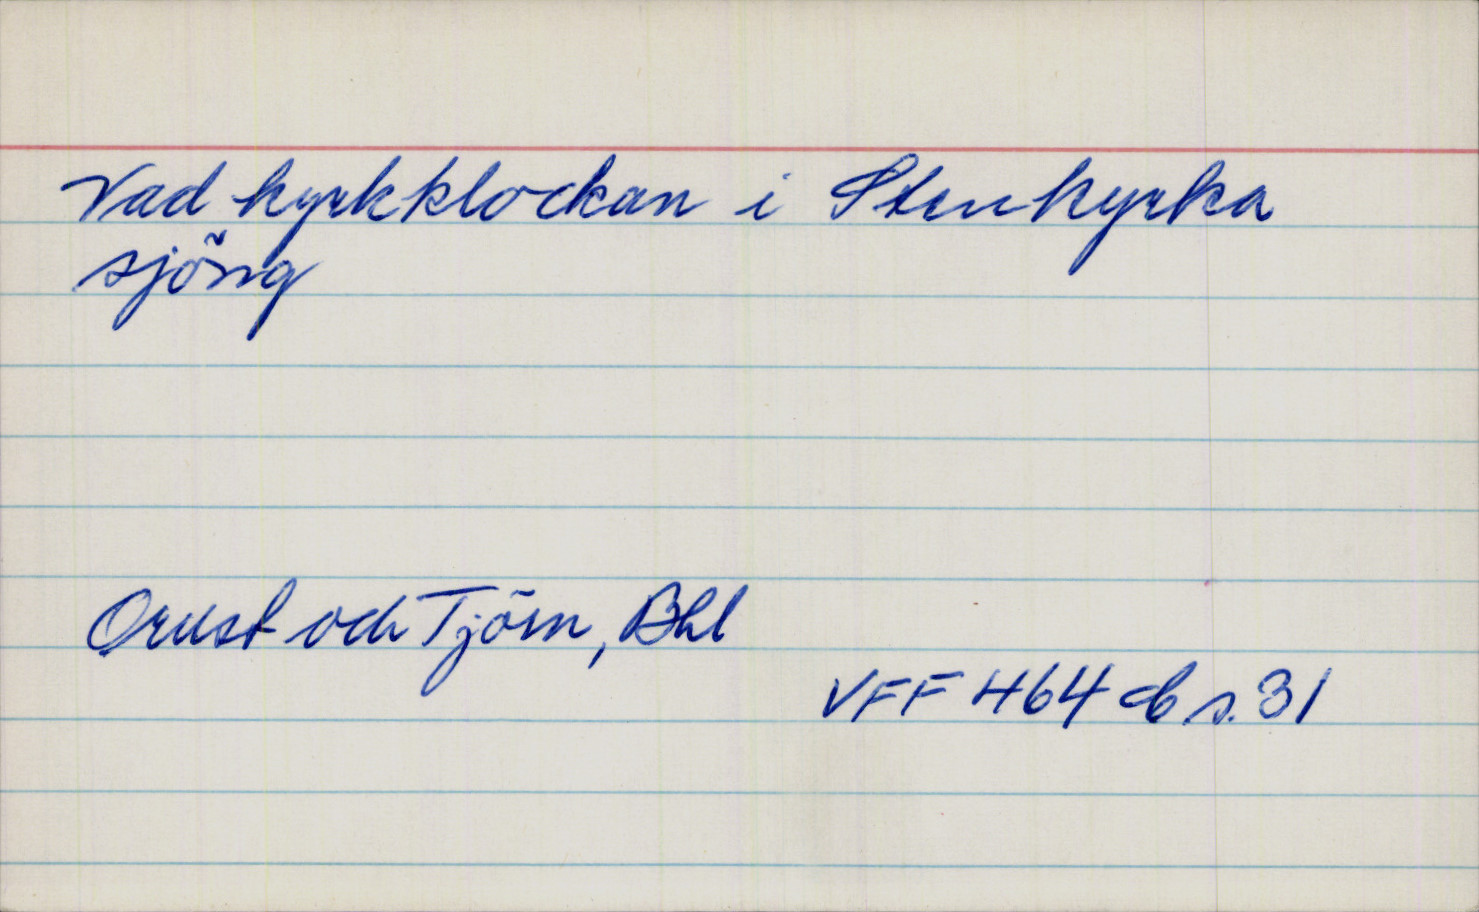 Vad kyrkklockan i Stenkyrka
sjöng
Orust och Tjörn, Bhl
VFF 464 s. 31